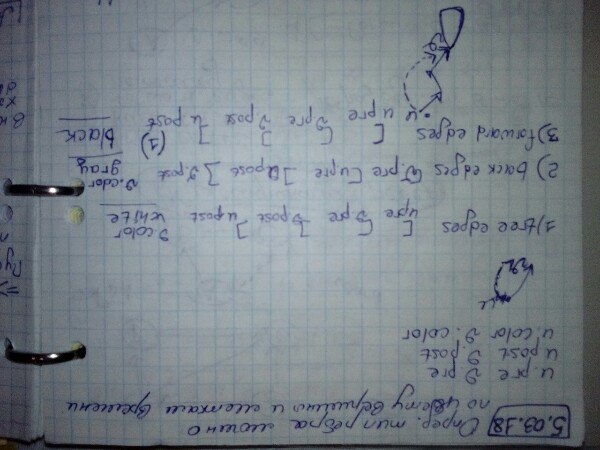 5.03.18 Опред. тип ребра можно
по цвету вершины и меткам времени
u.pre v.pre
u.post v.post
u.color v.color
u
v
1) tree edges [ [ ] ] v.color
u.pre v.pre v.post u.post white
2) back edges [v.pre [u.pre ]u.post ] v.post v.color
gray
3) forward edges [ [ ] ] (1) black
u.pre v.pre v.post u.post
u
v